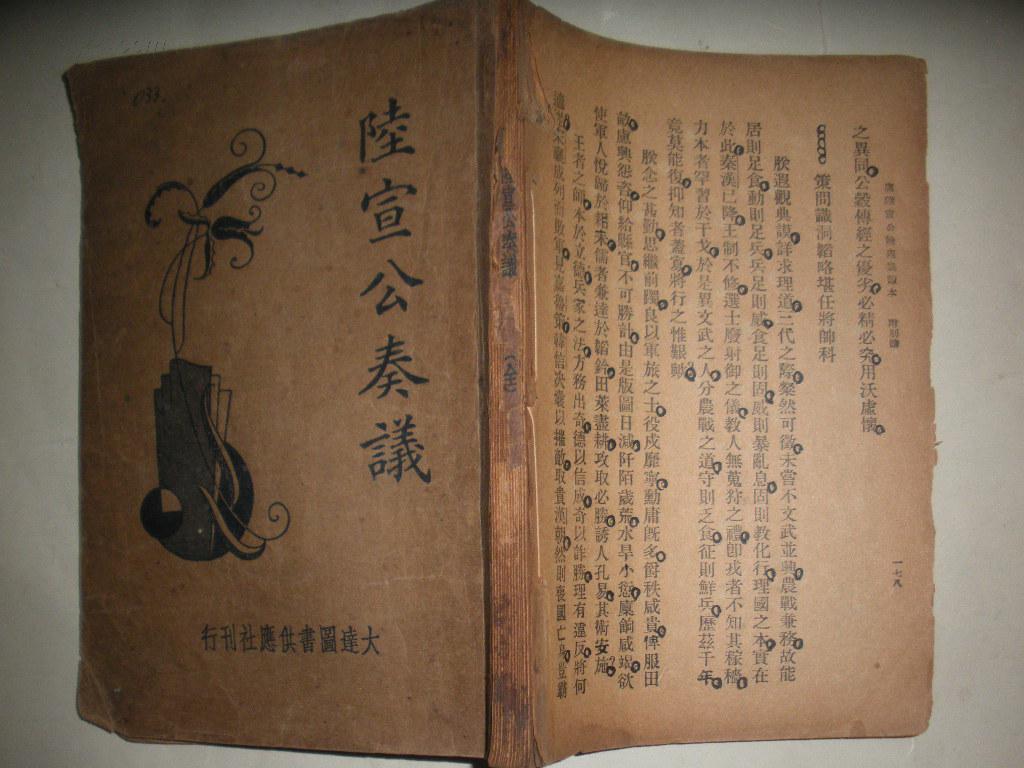 033.
陸宣公奏議
大達圖書供應社刊行
陸宣公奏議
（全）
一七八
之異同公穀傳經之優劣必精必究用沃虛懷
策問識洞韜略堪任將帥科
朕遐觀典謨詳求理道三代之際粲然可徵未嘗不文武並興農戰兼務故能
居則足食動則足兵兵足則威食足則固威則暴亂息固則教化行理國之本實在
於此秦漢已降王制不修選士廢射御之儀教人無蒐狩之禮卽戎者不知其稼穡
力本者罕習於干戈於是異文武之人分農戰之道守則乏食征則鮮兵歷茲千年
竟莫能復抑知者蓋寡將行之惟艱歟
朕念之甚勤思繼前躅良以軍旅之士役戍靡寧勳庸旣多爵秩咸貴俾服田
畝慮興怨咨仰給縣官不可勝計由是版圖日減阡陌歲荒水旱小愆廩餉咸竭欲
使軍人悅歸於耕耒儒者兼達於韜鈐田萊盡耕攻取必勝誘人孔易其術安施
王者之師本於立德兵家之法方務出奇德以信成奇以詐勝理有違反將何